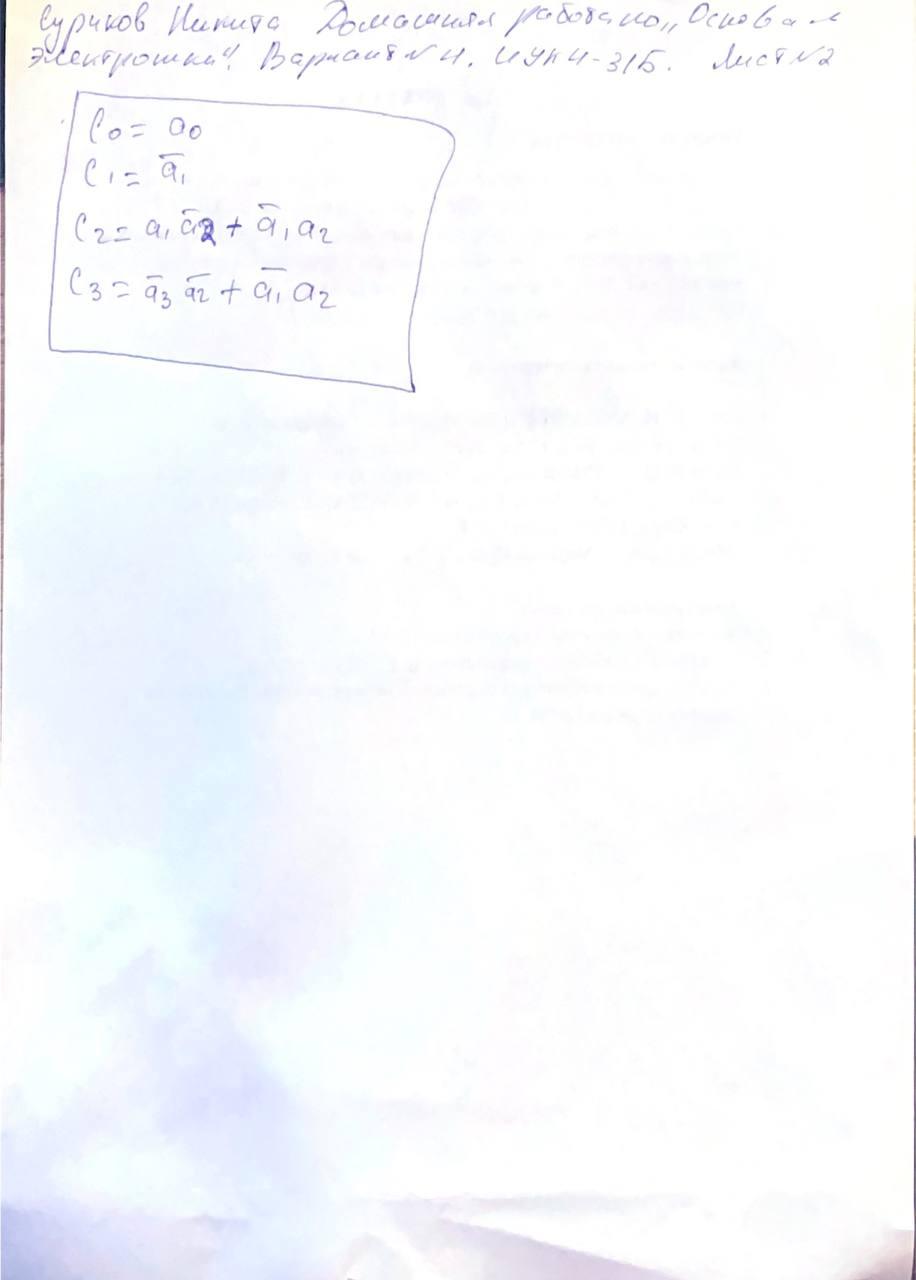 Суриков Никита Домашняя работа по „Основам
электроники". Вариант №4. ИУК4-31Б. Лист №2
C₀ = a₀
C₁ = a̅₁
C₂ = a₁ a̅₂ + a̅₁ a₂
C₃ = a̅₃ a̅₂ + a̅₁ a₂